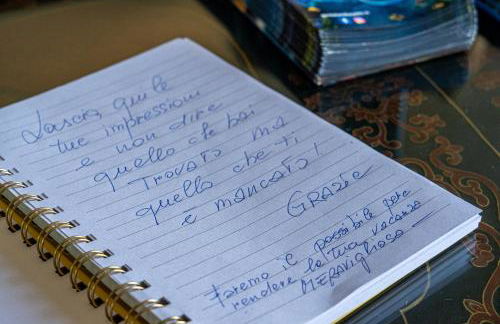 Lascia qui le
tue impressioni
e non dire
quello che hai
TROVATO MA
quello che ti
e mancato!
GRAZie
faremo il possibile per
rendere la tua vacanza
MERAVIGLIOSA